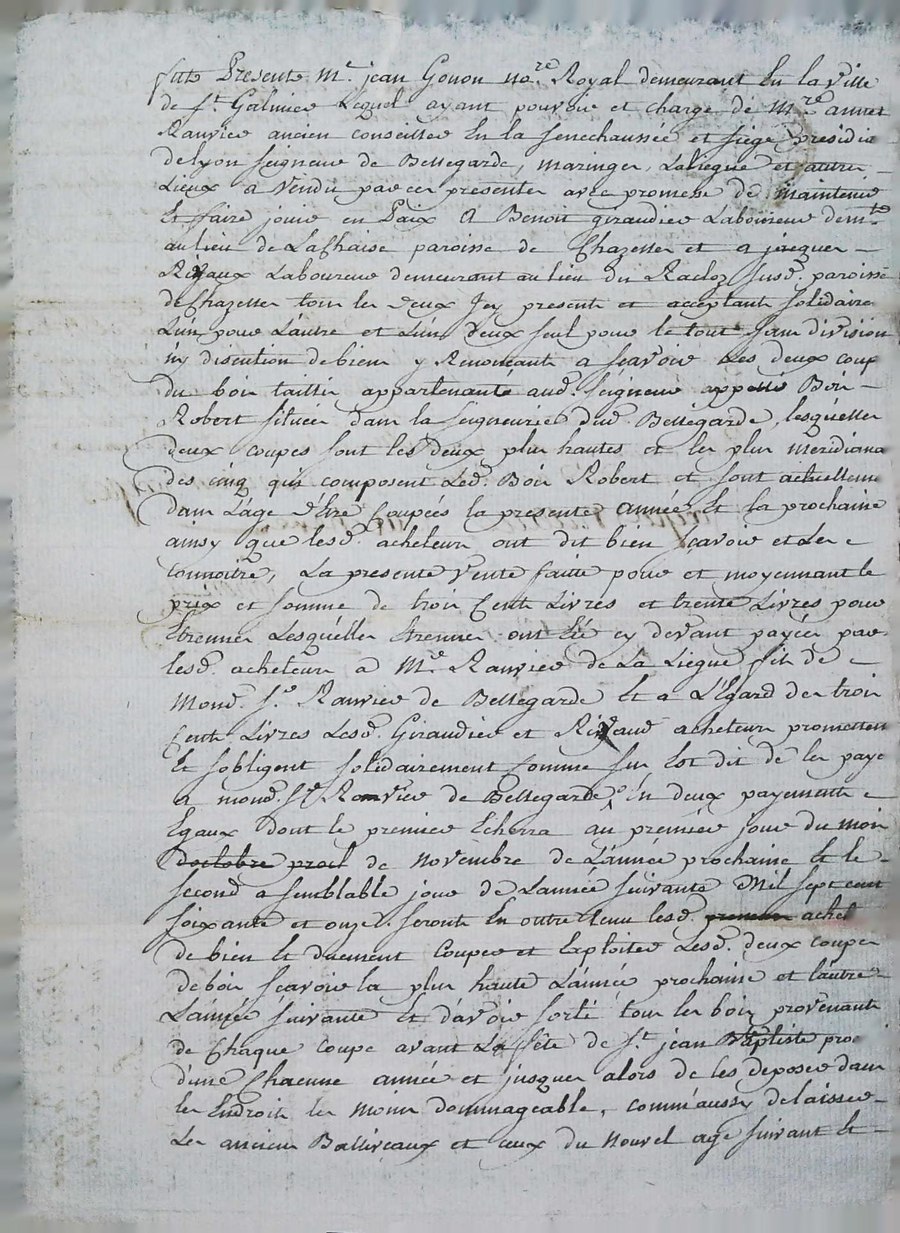 fut Present Mᵉ. jean Gonon noʳᵉ Royal demeurant En la ville
de Sᵗ. Galmier Lequel ayant pouvoir et charge de Mʳᵉ annet
Ranvier ancien conseiller En la Senechaussée et siège presidia
de lyon seigneur de Bellegarde, maringer, Laliegue et autres
Lieux a vendu par ces presentes avec promesse de maintenir
Et faire jouir en Paix A Benoit giraudier Laboureur demᵗ
au lieu de Lachaise paroisse de Chazelles et a jacques
Rivaux Laboureur demeurant au lieu du Racloz susd. paroisse
de Chazelles tous les deux Icy present et acceptant solidaire
L'un pour L'autre et L'un deux seul pour le tout sans division
ny discution de biens y Renonceant a scavoir Les deux coup
du bois taillis appartenante aud. seigneur appellé Bois
Robert située dans la seigneurie dud. Bellegarde, lesquelles
deux coupes sont les deux plus hautes et les plus meridiona
des cinq qui composent Led. Bois Robert et sont actuellemen
dans L'age d'Etre Coupées la presente année Et la prochaine
ainsy que lesd. acheteurs ont dit bien sçavoir et Les
connoitre, La presente vente faitte pour et moyennant le
prix et somme de trois Cents Livres et trente Livres pour
Etrennes Lesquelles Etrennes ont été cy devant payées par
lesd. acheteurs a Mʳ. Ranvier de La Liegue fils de
Mond. Sʳ. Ranvier de Bellegarde Et a L'Egard des trois
Cents Livres Lesd. Giraudier et Rivaud acheteurs promettent
Et s'obligent solidairement Comme sus Est dit de les paye
a mond. Sʳ Ranvier de Bellegarde, En deux payements
Egaux dont le premier Echerra au premier jour du mois
doctobre proch de Novembre de L'année prochaine Et le
second a semblable jour de L'année suivante Mil sept cent
soixante et onze. seront En outre tenu lesd. achet
de bien Et duement Couper et Exploiter Lesd. deux coupes
de bois sçavoir la plus haute L'année prochaine et l'autre
L'année suivante Et d'avoir sorti tous les bois provenants
de Chaque coupe avant La fête de Sᵗ. jean Baptiste pro
d'une Chacune année et jusques alors de les deposer dans
les Endroits les moins dommageable, comm'aussy delaisser
Les anciens Balliveaux et ceux du Nouvel age suivant Et